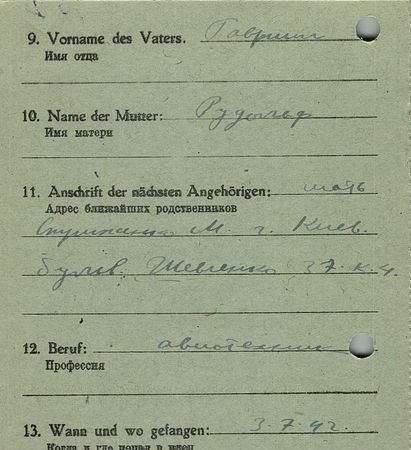 9. Vorname des Vaters. Гавриил
Имя отца
10. Name der Mutter: Рудольф
Имя матери
11. Anschrift der nächsten Angehörigen:
Адрес ближайших родственников
М. г. Киев.
бульв. Шевченко 37. к. 4.
12. Beruf: авиотехник
Профессия
13. Wann und wo gefangen: 3.7.42.
Когда и где попал в плен